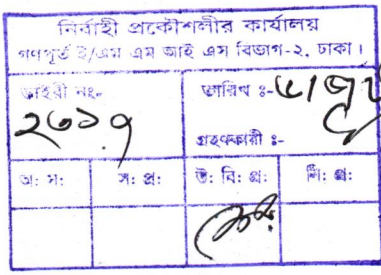 নির্বাহী প্রকৌশলীর কার্যালয়
গণপূর্ত ই/এম এম আই এস বিভাগ-২, ঢাকা।
ডাইরী নং-
তারিখ ঃ-
২৩১৭
গ্রহণকারী ঃ-
অ: স: স: প্র: উ: বি: প্র: নি: প্র: